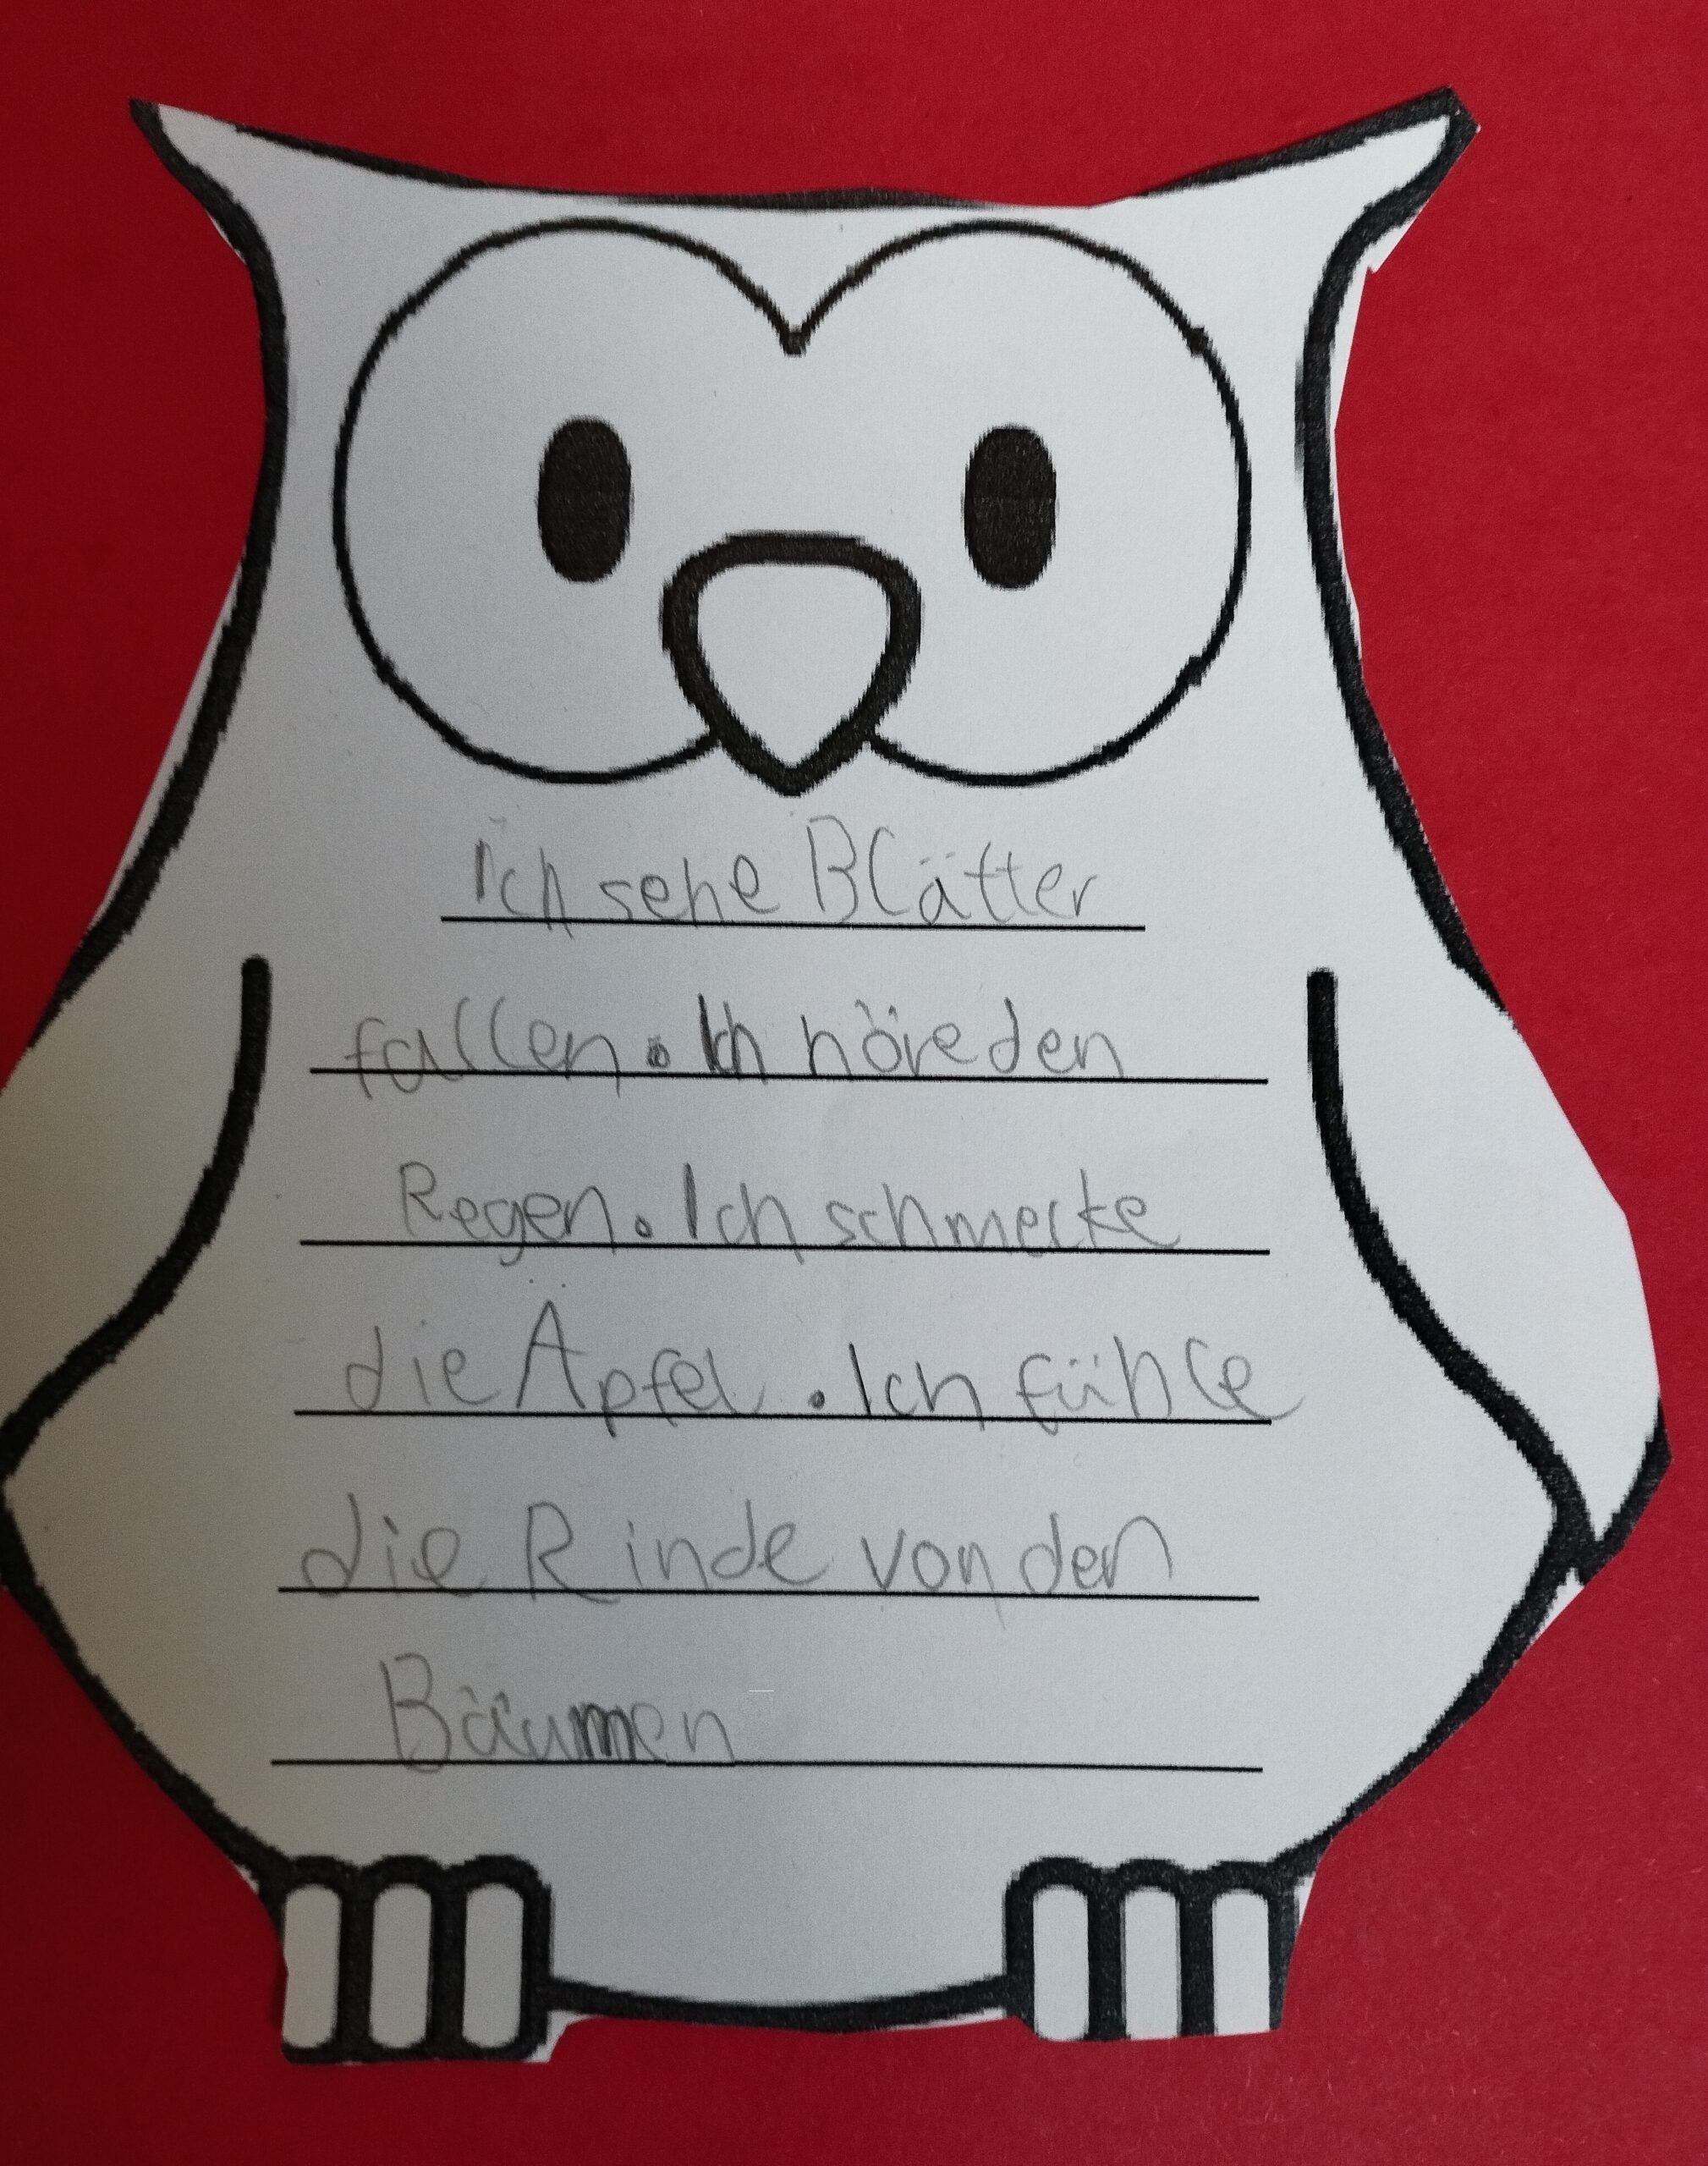 Ich sehe Blätter
fallen. Ich höre den
Regen. Ich schmecke
die Äpfel. Ich fühle
die Rinde von den
Bäumen